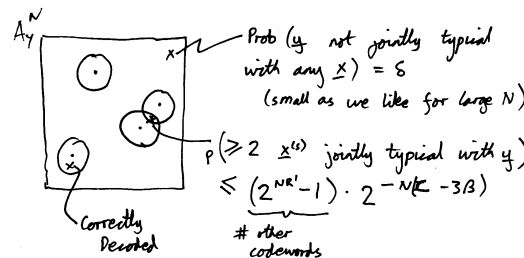 A_y^N
Prob (y not jointly typical
with any x) = δ
(small as we like for large N)
x
P(≥ 2 x^(s) jointly typical with y)
≤ (2^{NR'} - 1) · 2^{-N(C - 3β)}
x
# other
codewords
Correctly
Decoded